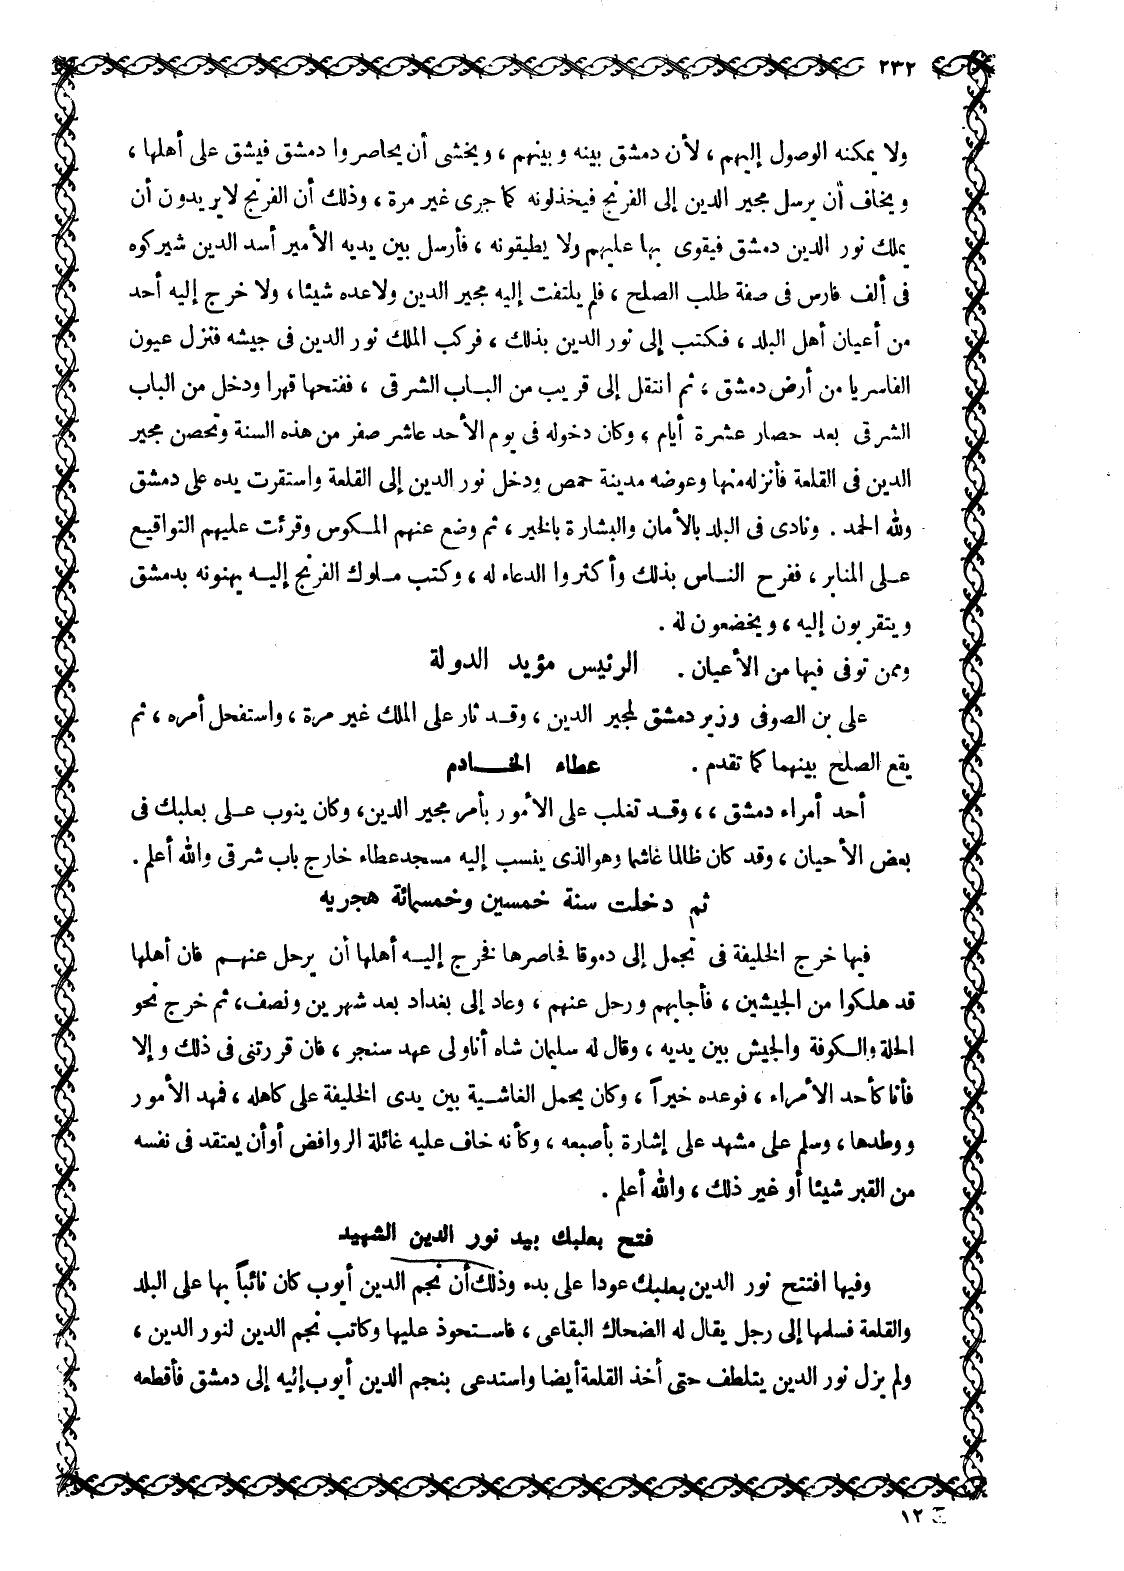 ٢٣٢
ولا يمكنه الوصول إليهم ، لأن دمشق بينه وبينهم ، ويخشى أن يحاصروا دمشق فيشق على أهلها ،
ويخاف أن يرسل مجير الدين إلى الفرنج فيخذلونه كما جرى غير مرة ، وذلك أن الفرنج لايريدون أن
يملك نور الدين دمشق فيقوى بها عليهم ولا يطيقونه ، فأرسل بين يديه الأمير أسد الدين شيركوه
فى ألف فارس فى صفة طلب الصلح ، فلم يلتفت إليه مجير الدين ولاعده شيئا ، ولا خرج إليه أحد
من أعيان أهل البلد ، فكتب إلى نور الدين بذلك ، فركب الملك نور الدين فى جيشه فنزل عيون
الفاسريا من أرض دمشق ، ثم انتقل إلى قريب من البـاب الشرقى ، ففتحها قهرا ودخل من الباب
الشرقى بعد حصار عشرة أيام ، وكان دخوله فى يوم الأحد عاشر صفر من هذه السنة وتحصن مجير
الدين فى القلعة فأنزله منها وعوضه مدينة حمص ودخل نور الدين إلى القلعة واستقرت يده على دمشق
ولله الحمد . ونادى فى البلد بالأمان والبشارة بالخير ، ثم وضع عنهم المكوس وقرئت عليهم التواقيع
عـلى المنابر ، ففرح النـاس بذلك وأكثروا الدعاء له ، وكتب مـلوك الفرنج إليـه يهنونه بدمشق
ويتقربون إليه ، ويخضعون له .
وممن توفى فيها من الأعيان . الرئيس مؤيد الدولة
على بن الصوفى وزير دمشق لمجير الدين ، وقـد ثار على الملك غير مرة ، واستفحل أمره ، ثم
يقع الصلح بينهما كما تقدم . عطاء الخـادم
أحد أمراء دمشق ، ، وقـد تغلب على الأمور بأمر مجير الدين ، وكان ينوب عـلى بعلبك فى
بعض الأحيان ، وقد كان ظالما غاشما وهوالذى ينسب إليه مسجد عطاء خارج باب شرقى والله أعلم .
ثم دخلت سنة خمسين وخمسمائة هجريه
فيها خرج الخليفة فى تجمل إلى دموقا فحاصرها فخرج إليـه أهلها أن يرحل عنهـم فان أهلها
قد هلـكوا من الجيشين ، فأجابهم ورحل عنهم ، وعاد إلى بغداد بعد شهرين ونصف ، ثم خرج نحو
الحلة والـكوفة والجيش بين يديه ، وقال له سليمان شاه أنا ولى عهد سنجر ، فان قررتنى فى ذلك وإلا
فأنا كأحد الأمراء ، فوعده خيراً ، وكان يحمل الغاشـية بين يدى الخليفة على كاهله ، فمهد الأمور
ووطدها ، وسلم على مشهد على إشارة بأصبعه ، وكأنه خاف عليه غائلة الروافض أوأن يعتقد فى نفسه
من القبر شيئا أو غير ذلك ، والله أعلم .
فتح بعلبك بيد نور الدين الشهيد
وفيها افتتح نور الدين بعلبك عودا على بدء وذلك أن نجم الدين أيوب كان نائباً بها على البلد
والقلعة فسلمها إلى رجل يقال له الضحاك البقاعى ، فاستحوذ عليها وكاتب نجم الدين لنور الدين ،
ولم يزل نور الدين يتلطف حتى أخذ القلعة أيضا واستدعى بنجم الدين أيوب إليه إلى دمشق فأقطعه
ج ١٢